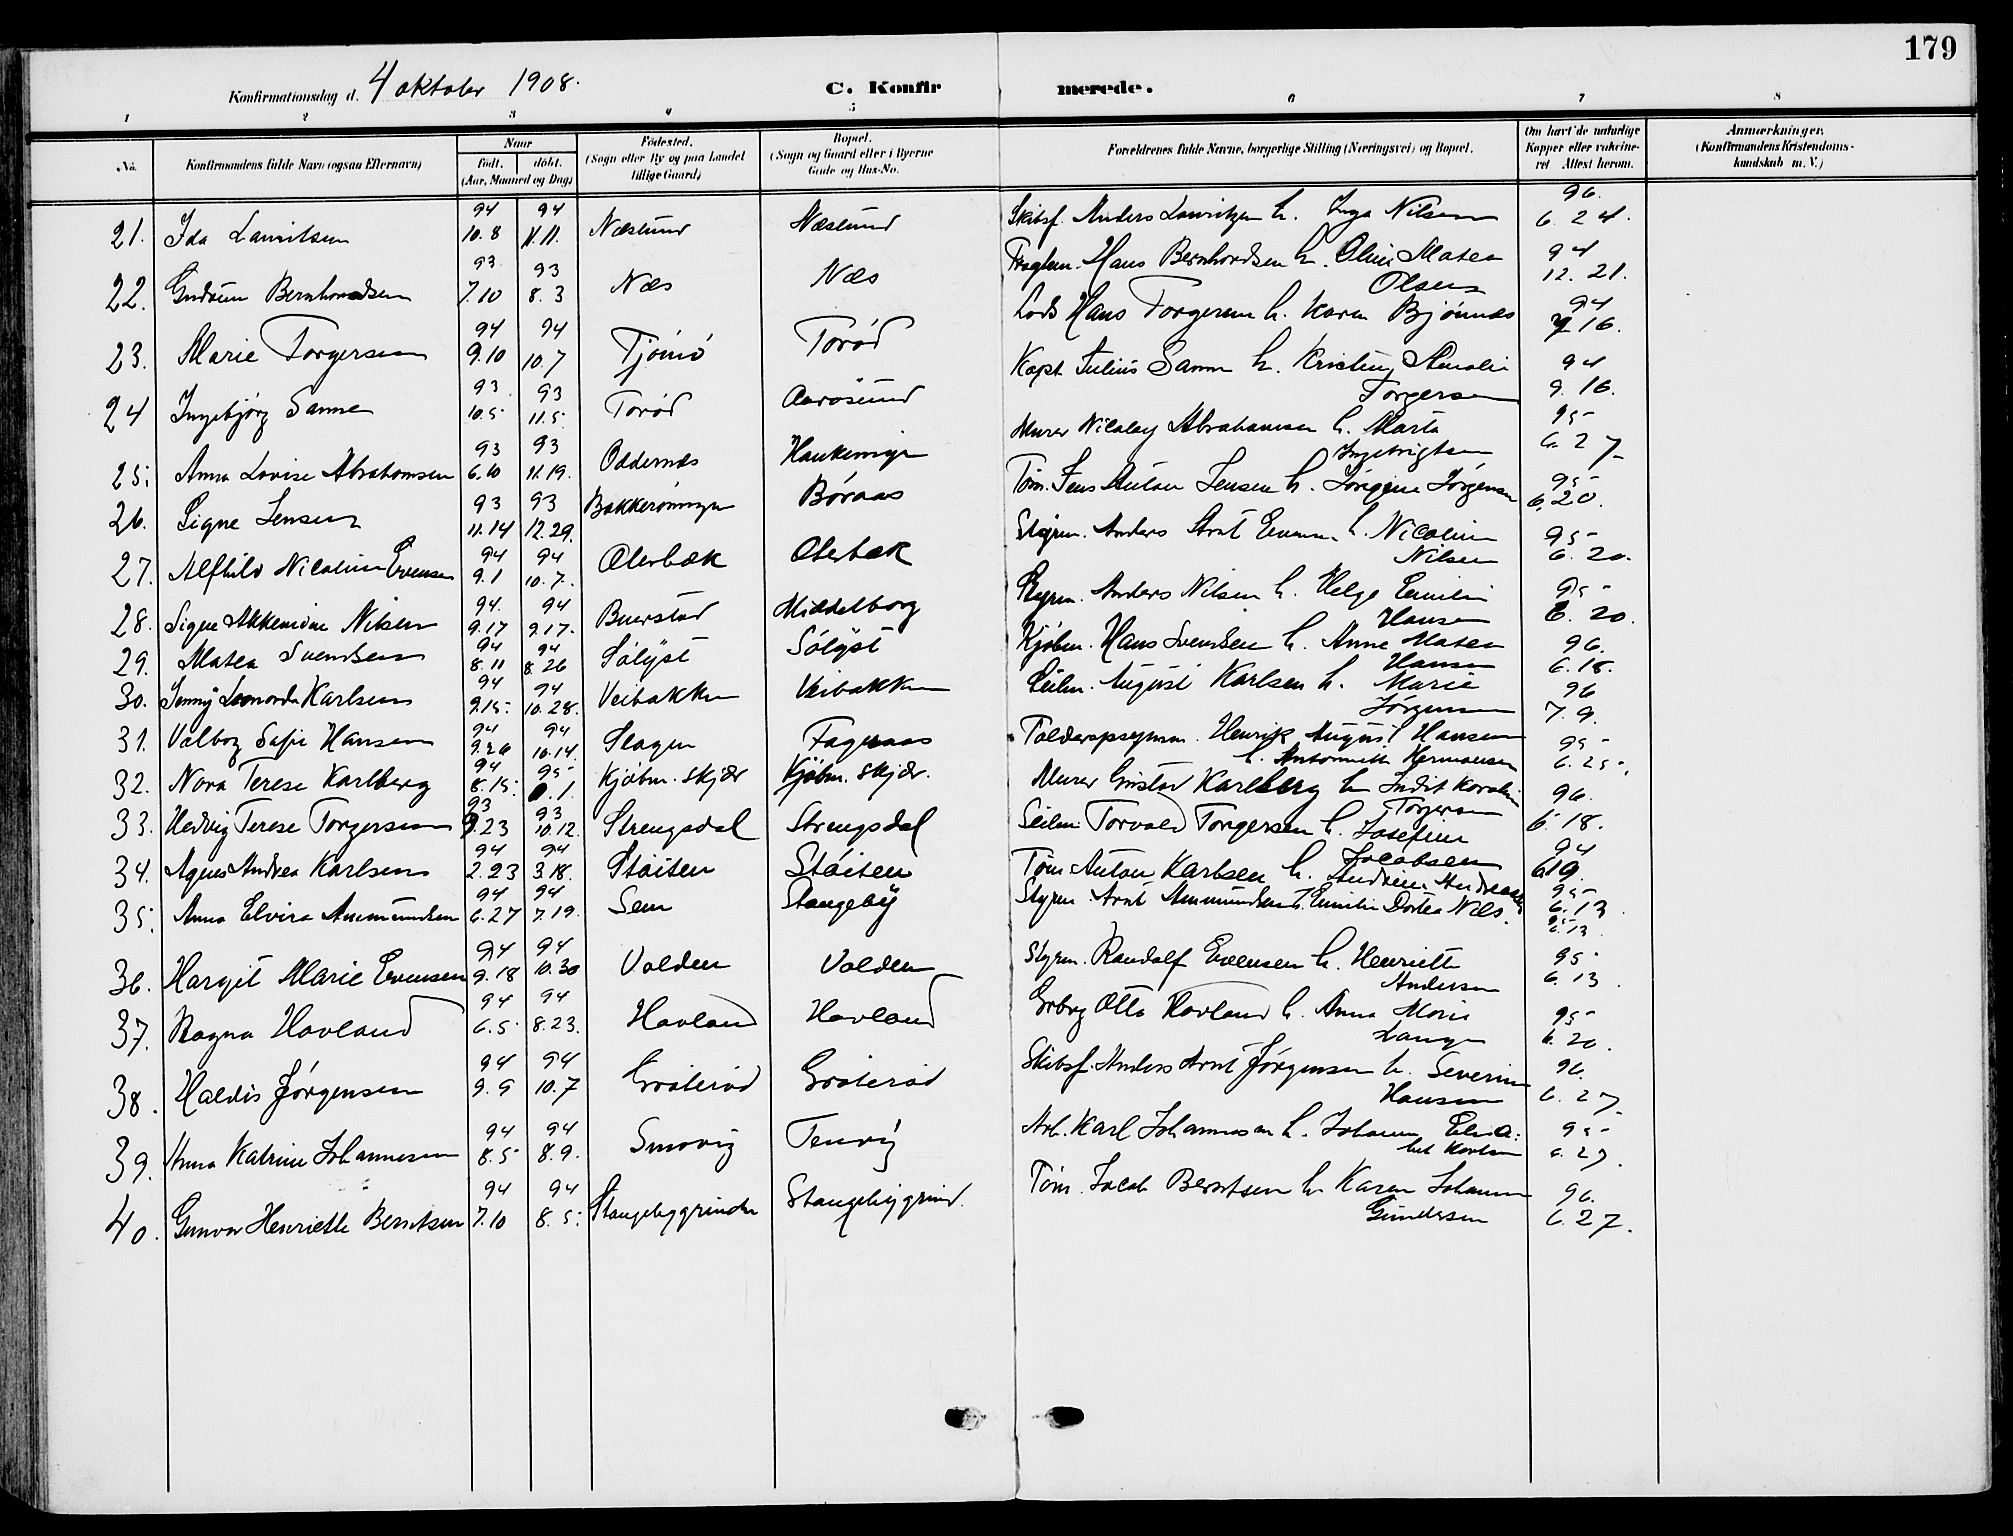 179
Konfirmationsdag d. 4 oktober 1908.
C. Konfirmerede.
1 2 3 4 5 6 7 8
No.
Konfirmandens fulde Navn (ogsaa Efternavn)
Naar
født. døbt.
(Aar, Maaned og Dag)
Fødested.
(Sogn eller By og paa Landet
tillige Gaard)
Bopæl.
(Sogn og Gaard eller i Byerne
Gade og Hus-No.
Forældrenes fulde Navne, borgerlige Stilling (Næringsvei) og Bopæl.
Om havt de naturlige
Kopper eller vakcine-
ret Attest herom.
Anmærkninger.
(Konfirmandens Kristendoms-
kundskab m. V.)
94 94 96.
21. Ida Lauritsen 10.8 11.11. Næslund Næslund Skibsf. Anders Lauritzen h. Inga Nilsen 6.24.
93 93 94
22. Gudrun Bernhardsen 7.10 8.3 Næs Næs Hans Bernhardsen h. Oline Matea 12.21.
Olsen
94 94 94
23. Marie Torgersen 9.10 10.7 Tjømø Torød Lods Hans Torgersen h. Karen Bjønnes 16.
93 93 94
24 Ingebjørg Sanne 10.5 11.5 Torød Aarøsund Kapt. Julius Sanne h. Kristine Amalie 9.16.
Torgersen
93 93 95
25. Anna Lovise Abrahamsen 6.10 11.19. Oddernes Murer Nicolay Abrahamsen h. Marta 6.27
Ingebrigtsen
93 93 95
26. Signe Jensen 11.14 12.29. Børaas Tøm. Jens Anton Jensen h. Jørgine Jørgensen 6.20.
94 94 95
27. Alfhild Nicoline Evensen 9.1 10.7. Oterbæk Oterbæk Styrm. Anders Arnt Evensen h. Nicoline 6.20.
Nilsen
94. 94 95
28. Signe Nilsen 9.17 9.17. Buerstad Middelborg Styrm. Anders Nilsen h. Helge Emilie 6.20.
Hansen
94 94 96.
29. Matea Svendsen 8.11 8.26 Sølyst Sølyst Kjøbm. Hans Svendsen h. Anne Matea 6.18.
Hansen
94 94 96
30. Jenny Leonarda Karlsen 9.15. 10.28. Veibakken Veibakken Seilm. August Karlsen h. Marie 7.9.
Jørgensen
94 94 95
31. Valborg Sofie Hansen 9.26 10.14. Slagen Fageraas Toldopsynsm. Henrik August Hansen 6.25.
h. Antonette Hermansen
94 95 96.
32. Nora Terese Karlberg 8.15. 1. Kjøbm. skjær Kjøbm. skjær. Murer Gustav Karlberg h. Indit Karoline 6.18.
Torgersen
93 93
33. Hedvig Terese Torgersen 9.23 10.12. Strengsdal Strengsdal Seilm. Torvald Torgersen h. Josefine
Jacobsen
94 94 94
34. Agnes Andrea Karlsen 2.23 3.18. Støiten Støiten Tøm. Anton Karlsen h. Andrine Andreassen 6.19.
94 94 95
35. Anna Elvira Ammundsen 6.27 7.19. Sem Stangeby Styrm. Arnt Ammundsen h. Emilie Dortea Nils. 6.13
94 94 95
36. Margit Marie Evensen 9.18 10.30 Volden Volden Styrm. Randolf Evensen h. Henriette 6.13
Andersen
94 94 95
37. Ragna Havland 6.5 8.23. Havland Havland Grbrg Otto Havland h. Anna Marie 6.20.
Lange
94 94 96.
38. Haldis Jørgensen 9.9 10.7 Grøterød Grøterød Skibsf. Anders Arnt Jørgensen h. Severine 6.27
Hansen
94 94 95
39. Anna Katrine Johannesen 8.5 8.9. Smovig Tenvig Arb. Karl Johannesen h. Johanne Elisa- 6.27.
bet Karlsen
94 94 96.
40. Gunvor Henriette Berntsen 7.10 8.5. Stangebygrinden Stangebygrind. Tøm. Jacob Berntsen h. Karen Johanne 6.27.
Gundersen